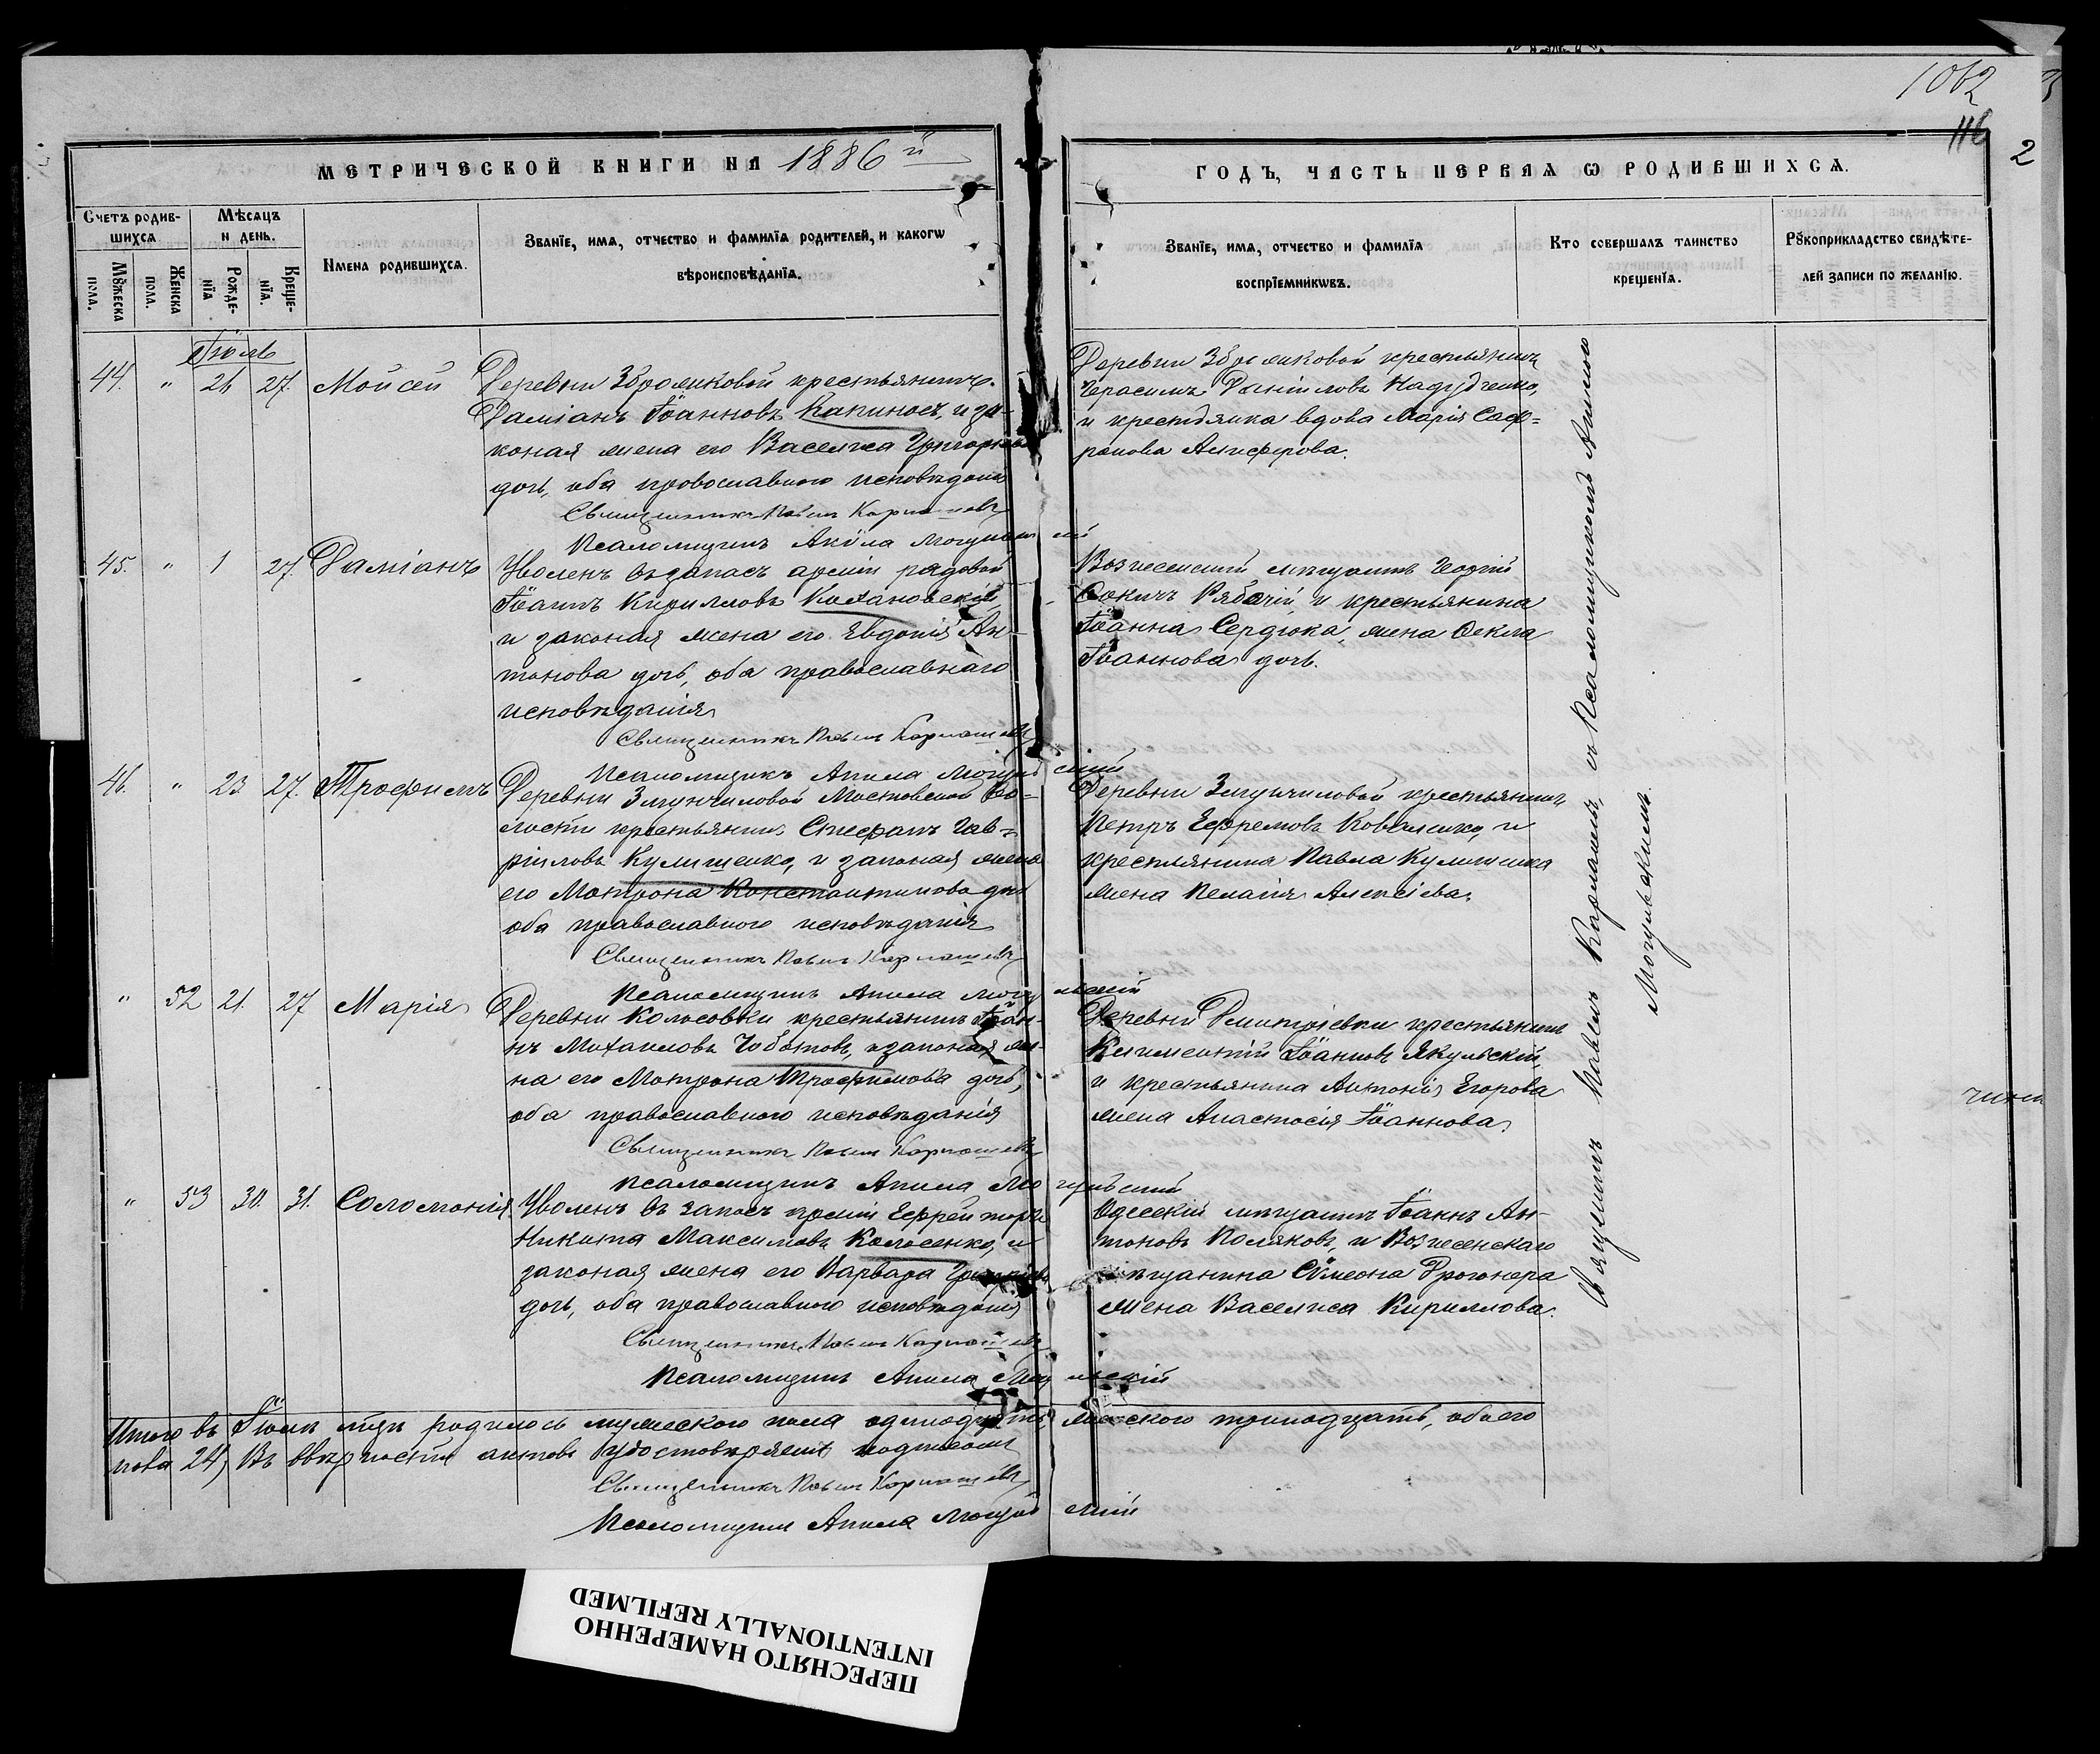 1062
116
2
МЕТРИЧЕСКОЙ КНИГИ НА 1886й
ГОДЪ, ЧАСТЬ ПЕРВАЯ Ѡ РОДИВШИХСЯ.
Счетъ родившихся
Мѣсяцъ и день.
Мꙋжеска пола.
Женска пола.
Рожденїя
Крещенїя.
Имена родившихся.
Званїе, имя, отчество и фамилїя родителей, и какогѡ
вѣроисповѣданїя.
Званїе, имя, отчество и фамилїя
воспрїемникѡвъ.
Кто совершалъ таинство
крещенїя.
Рꙋкоприкладство свидѣте-
лей записи по желанїю.
Іюль
44. " 26 27. Мойсей
Деревни крестьянинъ
Даміанъ Іоанновъ Капиносъ, и за-
коная жена его Василиса Григорьева
дочь, оба провославного исповѣданія
Священникъ Павелъ
Псаломщикъ Акѵла
Деревни крестьянинъ
Герасимъ Даніиловъ
и крестьянка вдова Марія Соф-
ронова
45. " 1 27. Даміанъ
Уволенъ въ запасъ арміи рядовой
Іоаннъ Кирилловъ Кохановскій,
и законая жена его Евдокія Ан-
тонова дочь, оба православнаго
исповѣданія
Священникъ Павелъ
Псаломщикъ Акила
Вознесенскій мѣщанинъ Георгій
Рябочій, и крестьянина
Іоанна Сердюка, жена Ѳекла
Іоаннова дочь.
46. " 23 27. Трофимъ
Деревни Московской во-
лости крестьянинъ Стефанъ Гав-
ріиловъ Кулишенко, и законая жена
его Матрона Константинова дочь
оба православного исповѣданія
Священникъ Павелъ
Псаломщикъ Акила
Деревни крестьянинъ
Петръ Ефремовъ Коваленко, и
крестьянина Павла Кулишенка
жена Пелагія Алексіева.
" 52 21. 27 Марія
Деревни Колосовки крестьянинъ Іоан-
нъ Михаиловъ Чоботовъ, и законая же-
на его Матрона Трофимова дочь,
оба православного исповѣданія
Священникъ Павелъ
Псаломщикъ Акила
Деревни Дмитріевки крестьянинъ
Климентій Іоанновъ Якульскій,
и крестьянина Антонія Егорова
жена Анастасія Іоаннова.
" 53 30. 31. Соломонія.
Уволенъ въ запасъ арміи Ефрейторъ
Никита Максимовъ Колосенко, и
законая жена его Варвара
дочь, оба православного исповѣданія
Священникъ Павелъ
Псаломщикъ Акила
Одесскій мѣщанинъ Іоаннъ Ан-
тоновъ Поляковъ, и Вознесенскаго
мѣщанина Сѵмеона
жена Василиса Кириллова.
Священникъ Павелъ съ Псаломщикомъ Акилою
Итого въ Іюлѣ м-цѣ родилось мужеского пола одинадцать, женского тринадцать, обоего
пола 24, Въ вѣрности актовъ удостовѣряемъ подписомъ
Священникъ Павелъ
Псаломщикъ Акила
ПЕРЕСНЯТО НАМЕРЕННО
INTENTIONALLY REFILMED